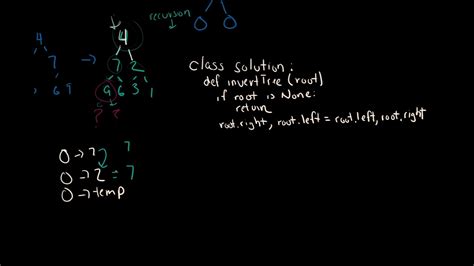 recursion
4
4
7
7 2
6 9
9 6 3 1
? ?
0 0
class solution:
def invertTree (root)
if root is None:
return
root.right, root.left = root.left, root.right
0 → 7 7
0 → 2 = 7
0 → temp